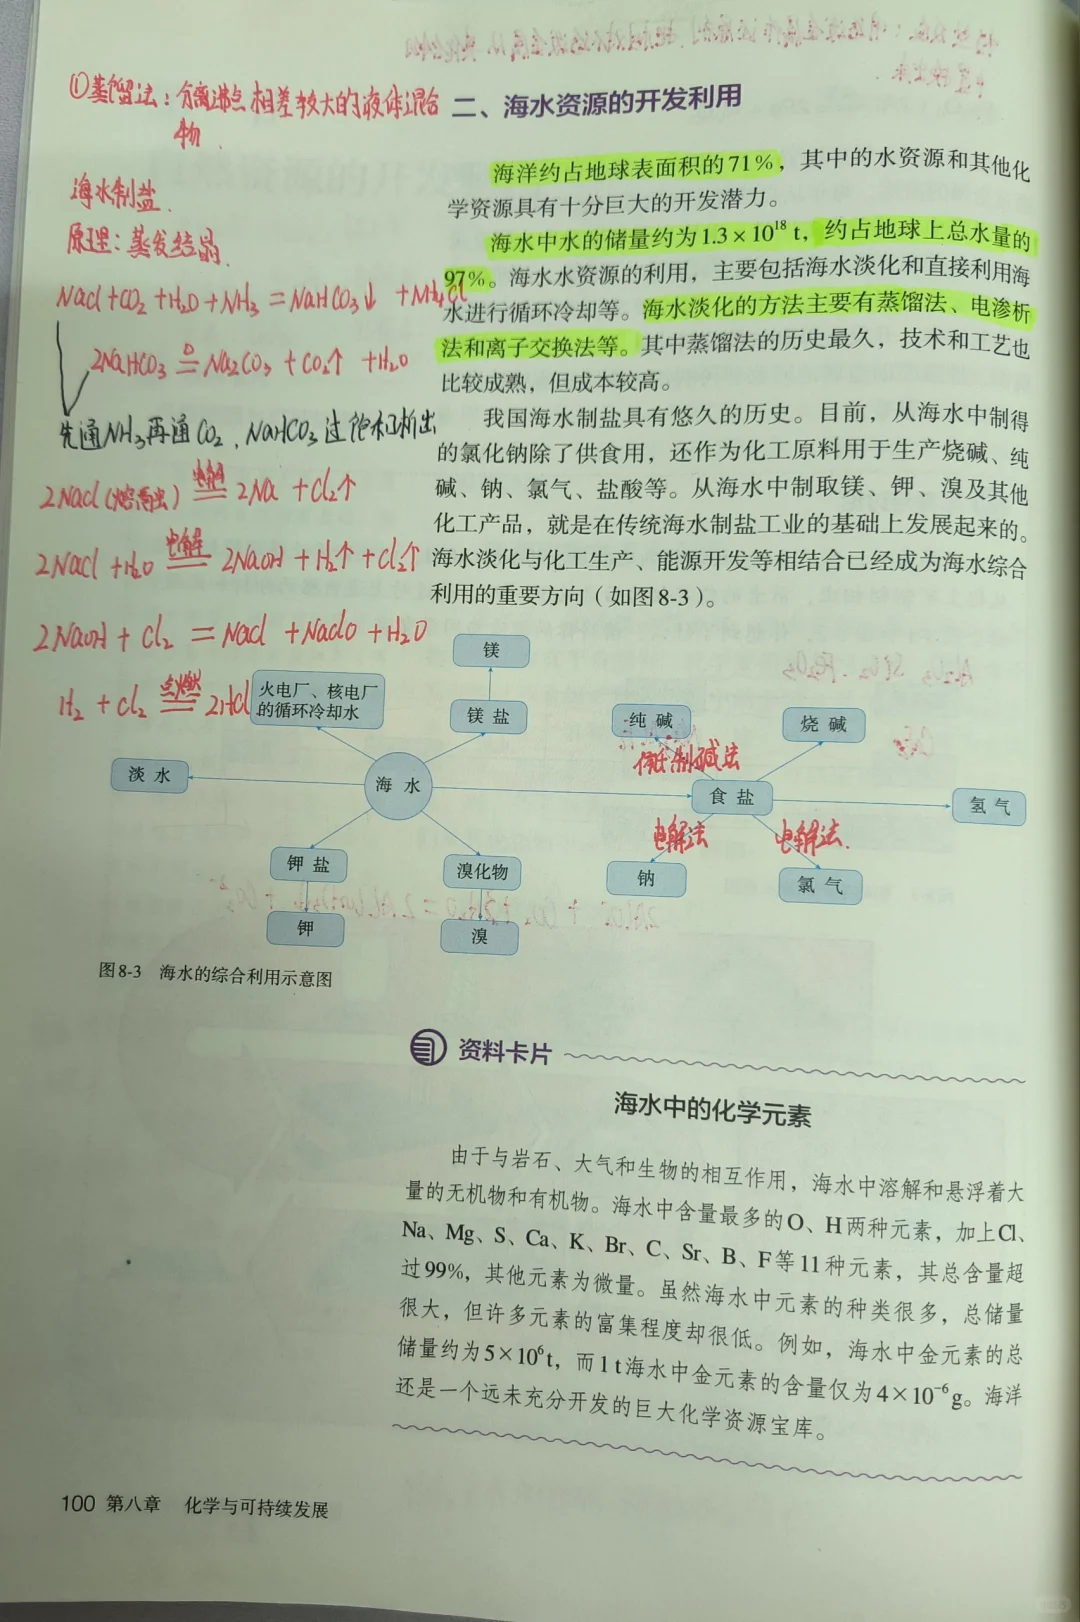 ①蒸馏法：分离沸点相差较大的液体混合
物.
海水制盐.
原理：蒸发结晶.
NaCl+CO₂+H₂O+NH₃=NaHCO₃↓+NH₄Cl
2NaHCO₃ △= Na₂CO₃+CO₂↑+H₂O
先通NH₃再通CO₂,NaHCO₃过饱和析出
2NaCl(熔融) 电解= 2Na+Cl₂↑
2NaCl+H₂O 电解= 2NaOH+H₂↑+Cl₂↑
2NaOH+Cl₂=NaCl+NaClO+H₂O
H₂+Cl₂ 点燃= 2HCl
二、海水资源的开发利用
海洋约占地球表面积的71%，其中的水资源和其他化
学资源具有十分巨大的开发潜力。
海水中水的储量约为1.3×10¹⁸ t，约占地球上总水量的
97%。海水水资源的利用，主要包括海水淡化和直接利用海
水进行循环冷却等。海水淡化的方法主要有蒸馏法、电渗析
法和离子交换法等。其中蒸馏法的历史最久，技术和工艺也
比较成熟，但成本较高。
我国海水制盐具有悠久的历史。目前，从海水中制得
的氯化钠除了供食用，还作为化工原料用于生产烧碱、纯
碱、钠、氯气、盐酸等。从海水中制取镁、钾、溴及其他
化工产品，就是在传统海水制盐工业的基础上发展起来的。
海水淡化与化工生产、能源开发等相结合已经成为海水综合
利用的重要方向（如图8-3）。
镁
火电厂、核电厂
的循环冷却水
镁盐
纯碱
烧碱
侯氏制碱法
淡水
海水
食盐
氢气
电解法
电解法.
钾盐
溴化物
钠
氯气
钾
溴
图8-3 海水的综合利用示意图
资料卡片
海水中的化学元素
由于与岩石、大气和生物的相互作用，海水中溶解和悬浮着大
量的无机物和有机物。海水中含量最多的O、H两种元素，加上Cl、
Na、Mg、S、Ca、K、Br、C、Sr、B、F等11种元素，其总含量超
过99%，其他元素为微量。虽然海水中元素的种类很多，总储量
很大，但许多元素的富集程度却很低。例如，海水中金元素的总
储量约为5×10⁶t，而1 t海水中金元素的含量仅为4×10⁻⁶g。海洋
还是一个远未充分开发的巨大化学资源宝库。
100 第八章 化学与可持续发展